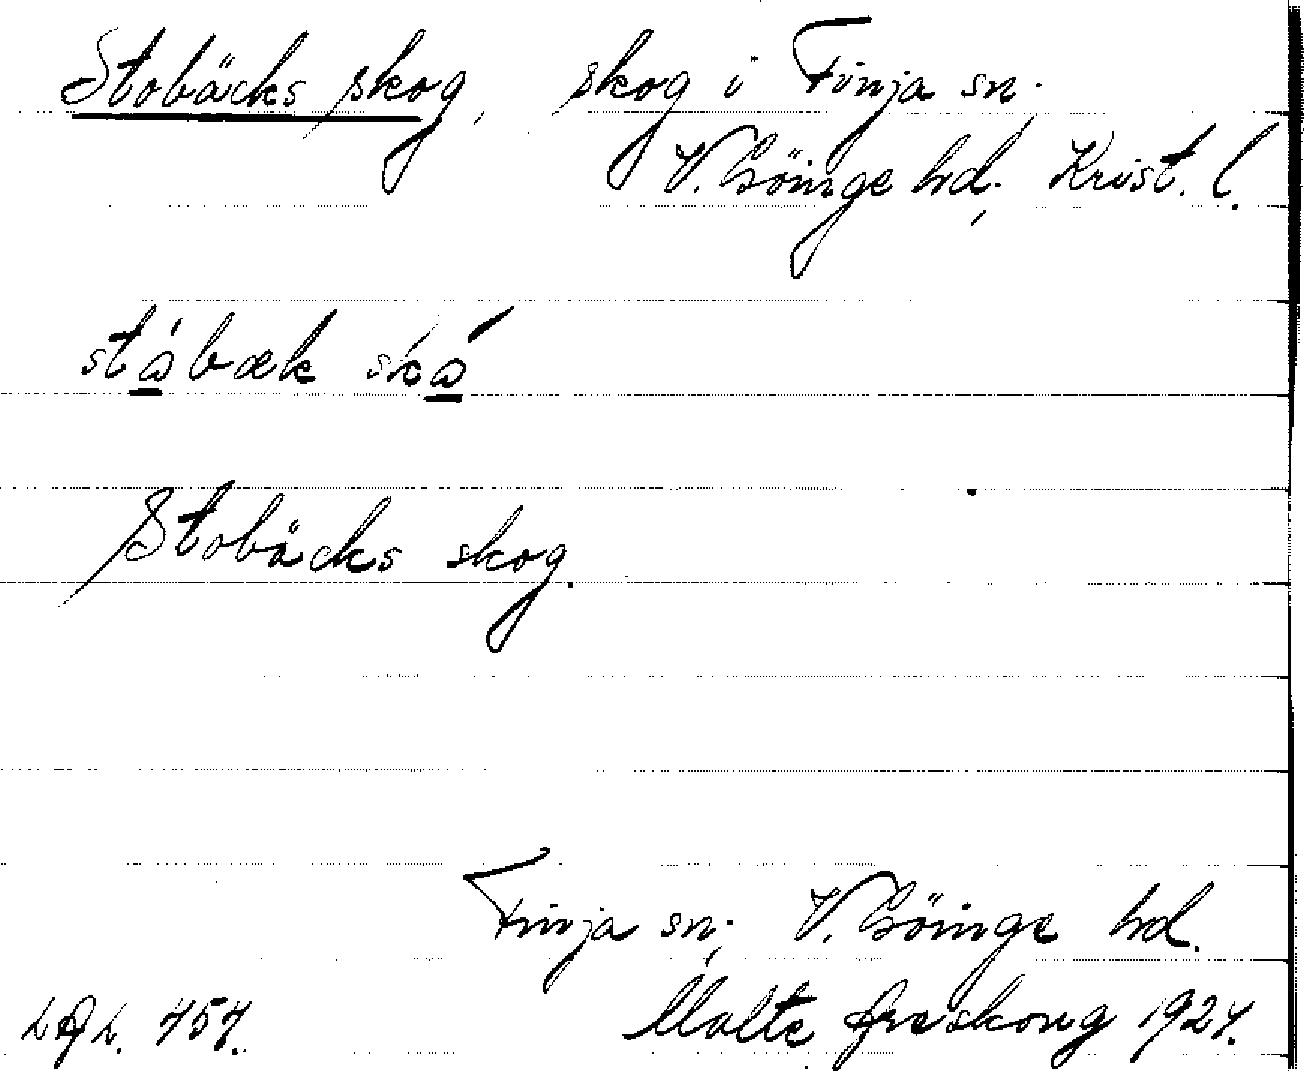 Stobäcks skog, skog i Finja sn.
V. Göinge hd, Krist. l.
ståbæk skå
Stobäcks skog.
Finja sn, V. Göinge hd.
Malte 1924.